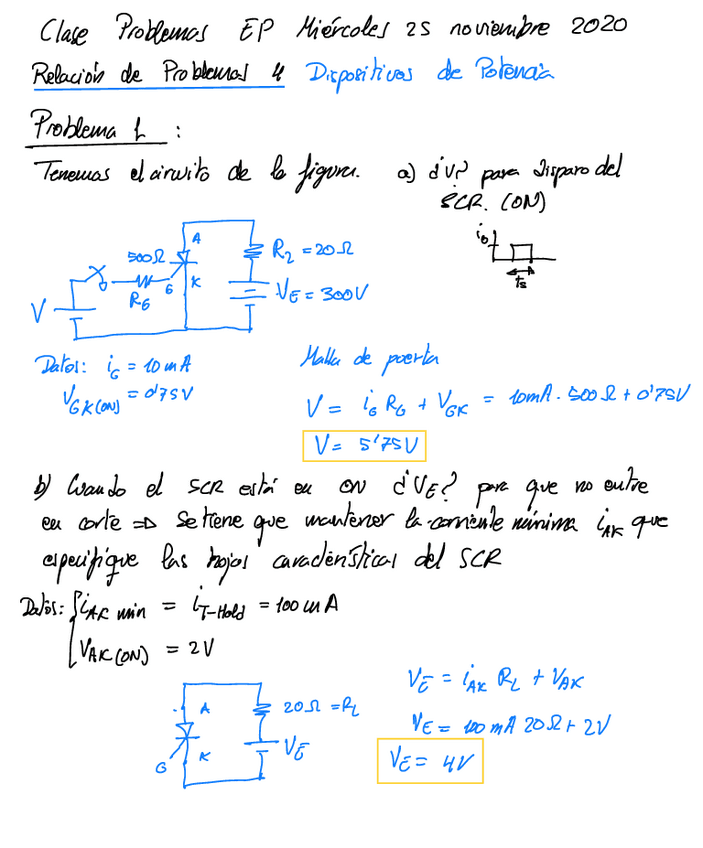 Clase Problemas EP Miércoles 25 noviembre 2020
Relación de Problemas 4 Dispositivos de Potencia
Problema 1 :
Tenemos el circuito de la figura. a) ¿V? para disparo del
SCR. (ON)
iG
ts
A
500Ω
RG
G
K
V
R2 = 20Ω
VE = 300V
Datos: iG = 10mA
VGK(ON) = 0'75V
Malla de puerta
V = iG RG + VGK = 10mA · 500Ω + 0'75V
V = 5'75V
b) Cuando el SCR está en ON ¿VE? para que no entre
en corte ⇒ Se tiene que mantener la corriente mínima iAK que
especifique las hojas características del SCR
Datos: { iAK min = iT-Hold = 100mA
VAK(ON) = 2V
A
G
K
20Ω = RL
VE
VE = iAK RL + VAK
VE = 100mA 20Ω + 2V
VE = 4V